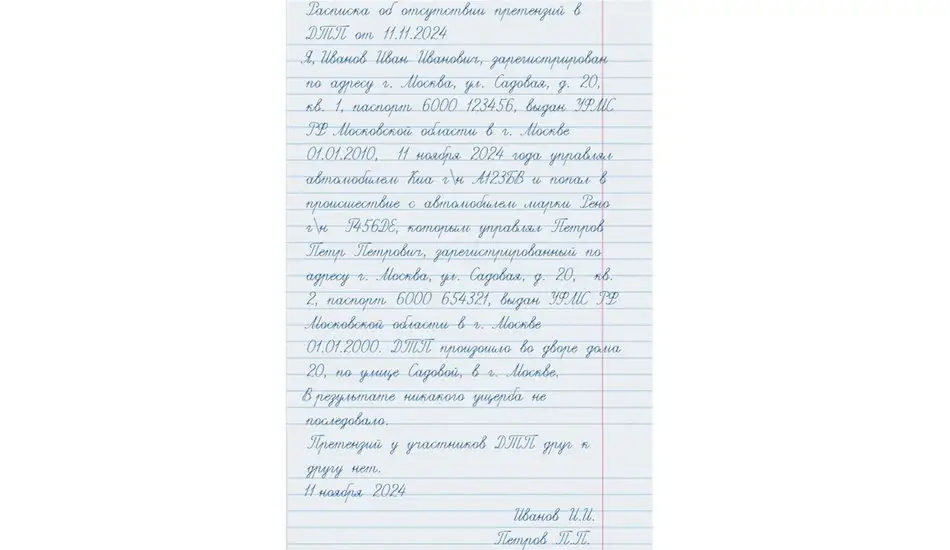 Расписка об отсутствии претензий в
ДТП от 11.11.2024
Я, Иванов Иван Иванович, зарегистрирован
по адресу г. Москва, ул. Садовая, д. 20,
кв. 1, паспорт 6000 123456, выдан УФМС
РФ Московской области в г. Москве
01.01.2010, 11 ноября 2024 года управлял
автомобилем Киа г\н А123БВ и попал в
происшествие с автомобилем марки Рено
г\н Г456DЕ, которым управлял Петров
Петр Петрович, зарегистрированный по
адресу г. Москва, ул. Садовая, д. 20, кв.
2, паспорт 6000 654321, выдан УФМС РФ
Московской области в г. Москве
01.01.2000. ДТП произошло во дворе дома
20, по улице Садовой, в г. Москве.
В результате никакого ущерба не
последовало.
Претензий у участников ДТП друг к
другу нет.
11 ноября 2024
Иванов И.И.
Петров П.П.